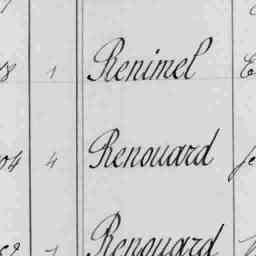 8 1 Renimel
04 4 Renouard
Renouard